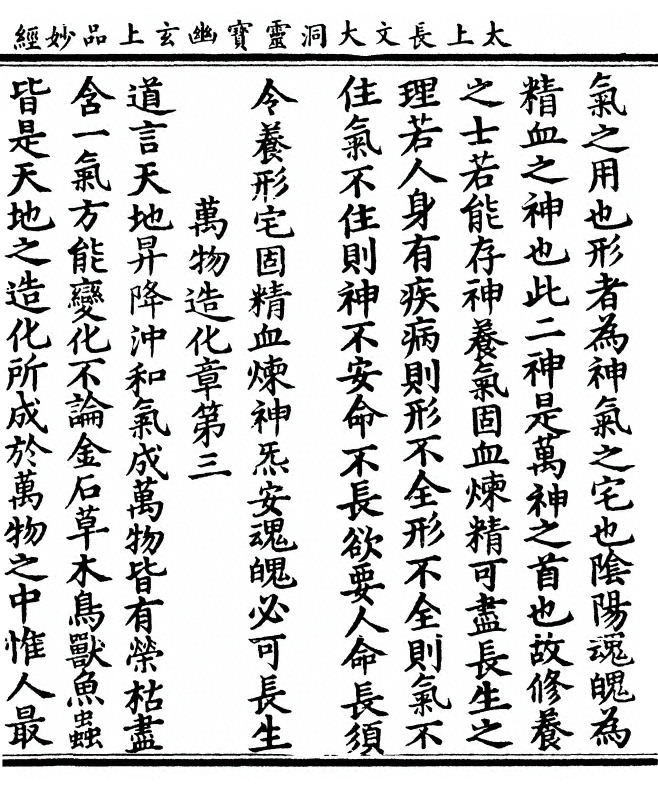 太上長文大洞靈寶幽玄上品妙經
氣之用也形者為神氣之宅也陰陽魂魄為
精血之神也此二神是萬神之首也故修養
之士若能存神養氣固血煉精可盡長生之
理若人身有疾病則形不全形不全則氣不
住氣不住則神不安命不長欲要人命長須
令養形宅固精血煉神炁安魂魄必可長生
萬物造化章第三
道言天地昇降沖和氣成萬物皆有榮枯盡
含一氣方能變化不論金石草木鳥獸魚蟲
皆是天地之造化所成於萬物之中惟人最